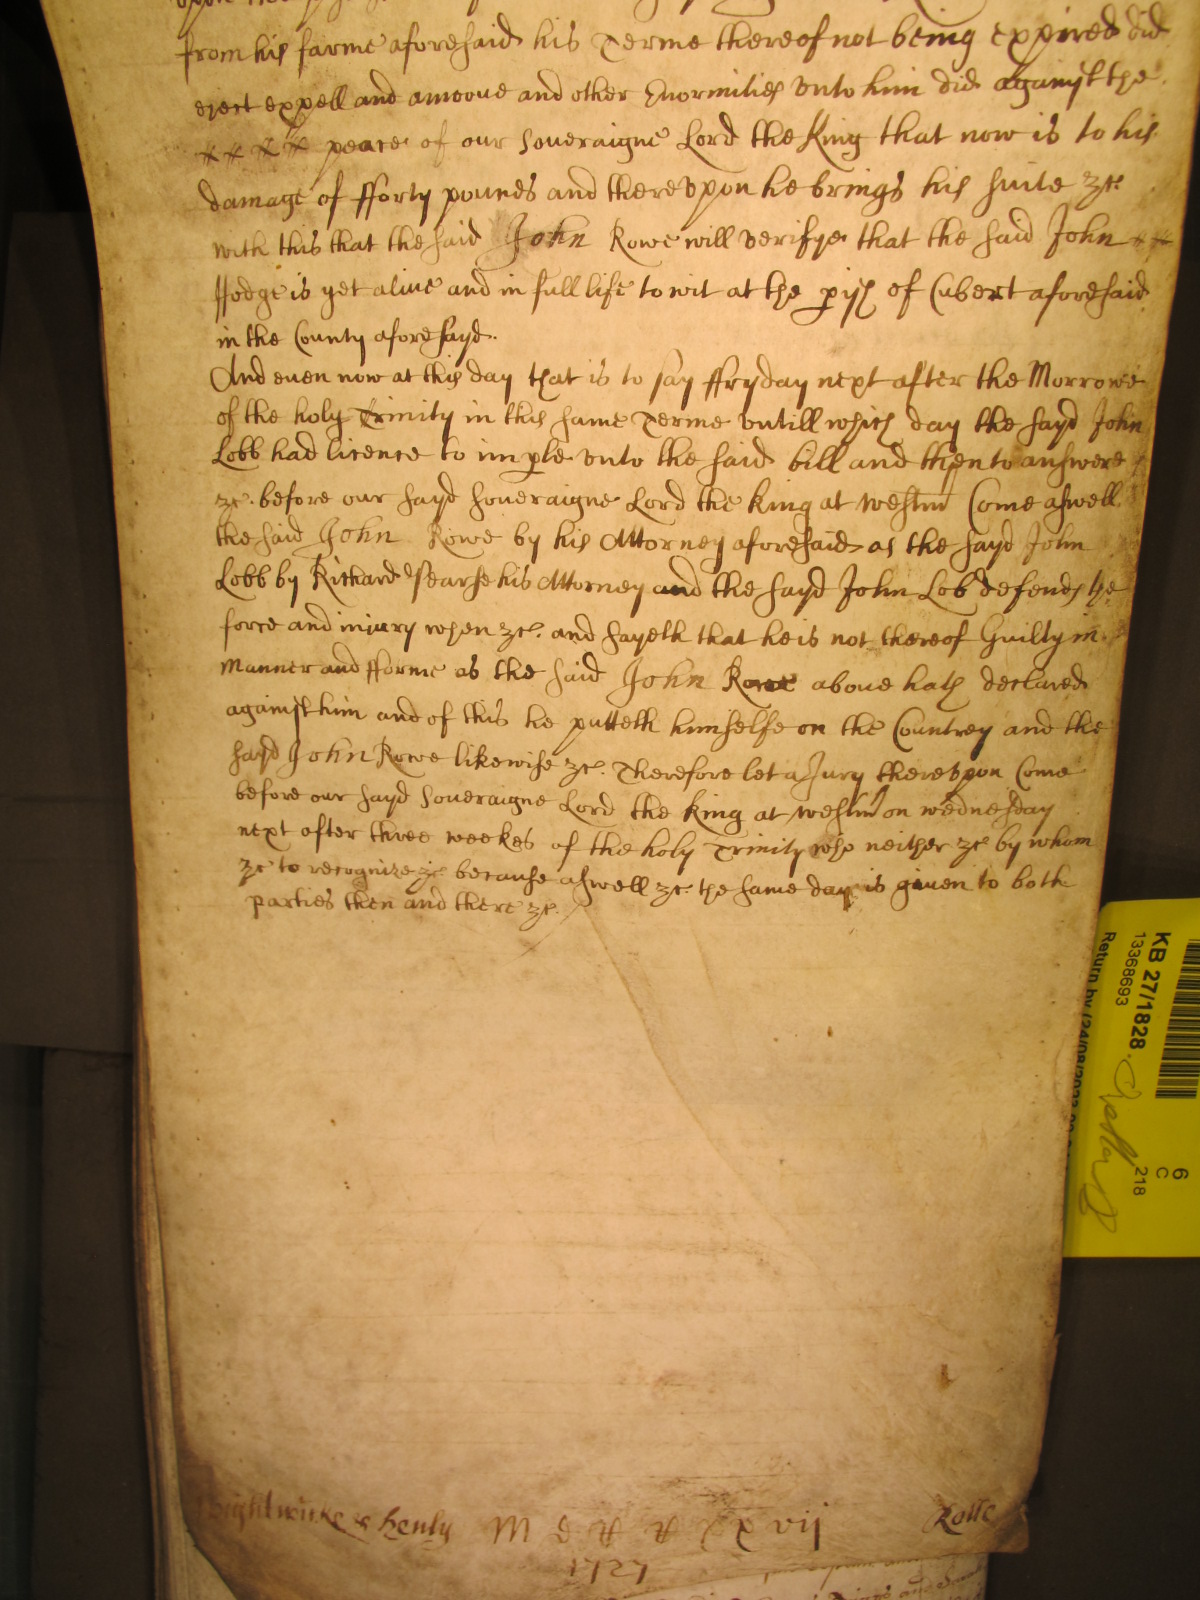 from his farme aforesaid his Terme thereof not being expired did
eject expell and amoove and other Enormities unto him did against the
peace of our Soveraigne Lord the King that now is to his
damage of fforty pounds and thereupon he brings his suite &c
with this that the said John Rowe will verifye that the said John
ffodge is yet alive and in full life to wit at the pish of Cubert aforesaid
in the County aforesayd.
And even now at this day that is to say ffryday next after the Morrowe
of the holy Trinity in this same Terme untill which day the sayd John
Lobb had licence to imple unto the said bill and then to answere
&c. before our sayd Soveraigne Lord the King at Westm Come aswell
the said John Rowe by his Attorney aforesaid as the sayd John
Lobb by Richard Pearse his Attorney and the sayd John Lob defends the
force and injury when &c. and sayeth that he is not thereof Guilty in
Manner and fforme as the said John Rowe above hath declared
against him and of this he putteth himselfe on the Countrey and the
sayd John Rowe likewise &c. Therefore let a Jury thereupon Come
before our sayd Soveraigne Lord the King at Westm on wednesday
next after three weekes of the holy Trinity who neither &c by whom
&c to recognize &c because aswell &c. the same day is given to both
parties then and there &c.
& Henly
Rolle
1727
KB 27/1828
13368693
Return by
6
C
218